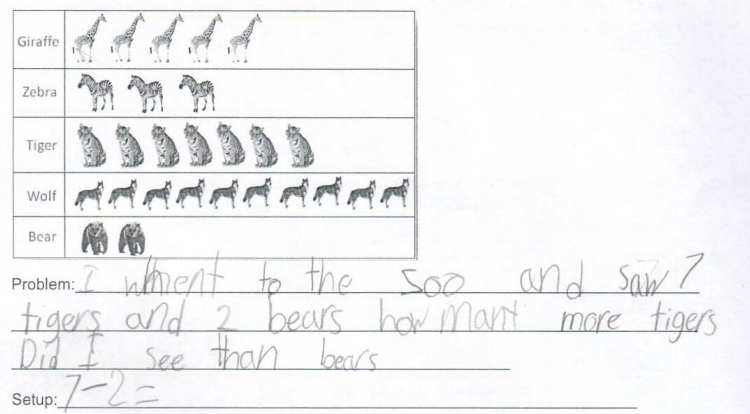 Giraffe
Zebra
Tiger
Wolf
Bear
Problem: I whent to the soo and saw 7
tigers and 2 bears how mant more tigers
Did I see than bears
Setup: 7-2=